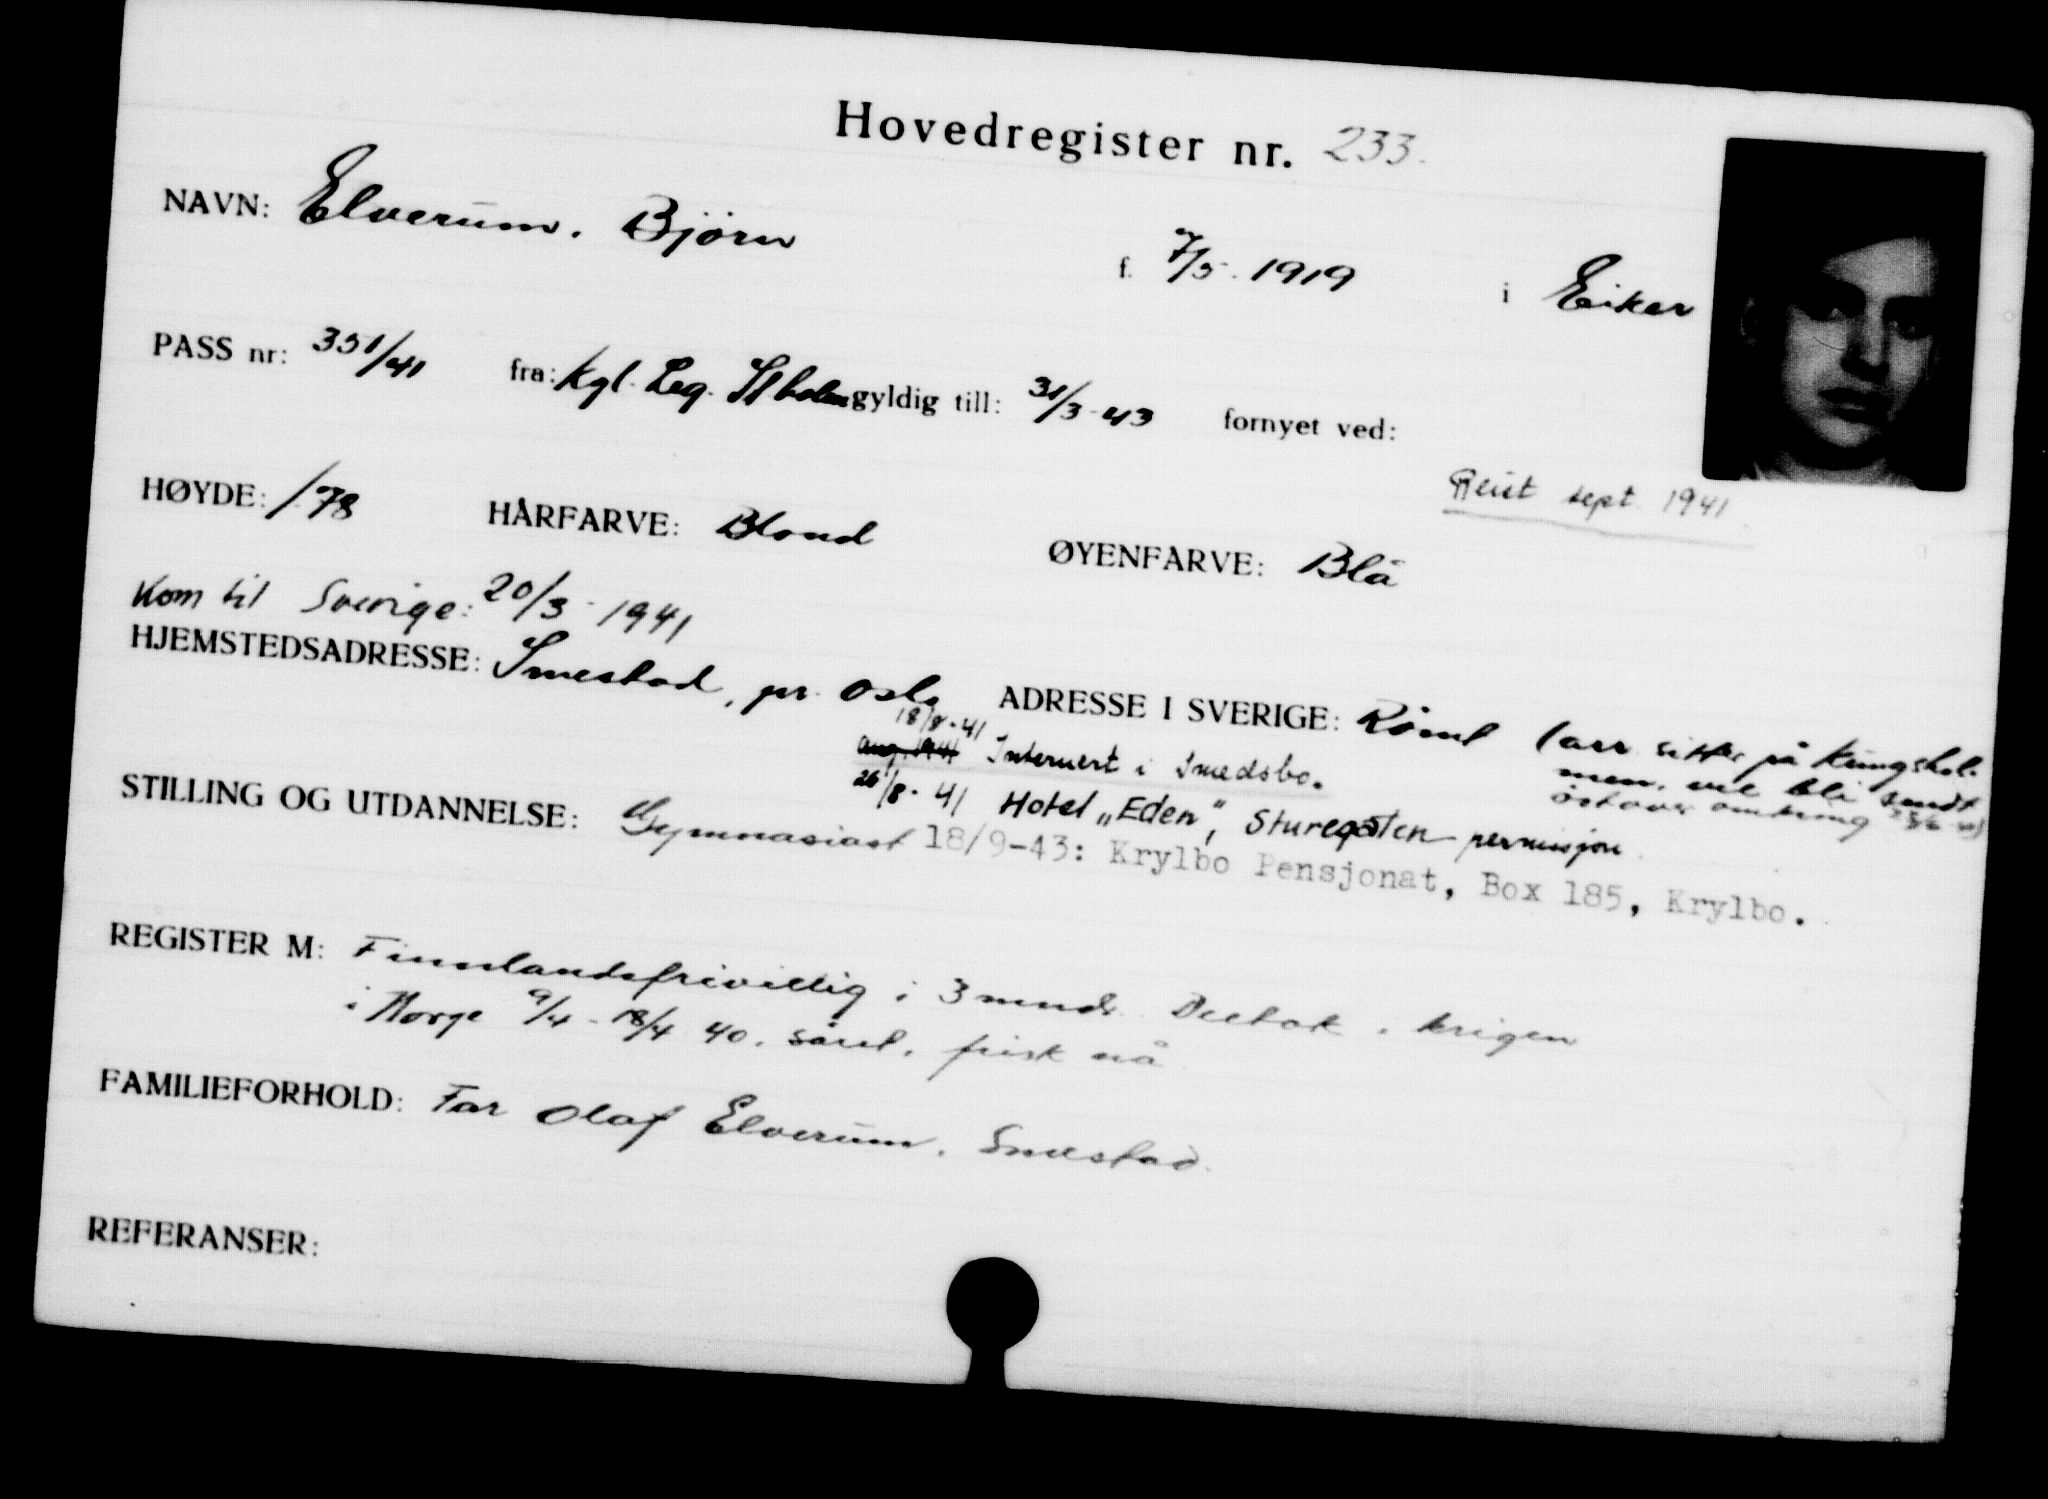 Hovedregister nr. 233.
NAVN: Elverum. Bjørn f. 7/5. 1919 i Eiker
PASS nr: 351/41 fra: Kgl. Leg. Stholm gyldig till: 31/3-43 fornyet ved:
Reist sept. 1941
HØYDE: 178 HÅRFARVE: Blond ØYENFARVE: Blå
Kom til Sverige: 20/3-1941
HJEMSTEDSADRESSE: Smestad, pr. Oslo ADRESSE I SVERIGE: (arr. sitter på Kungshol-
men, vil bli sendt
østover omkring
18/8-41
aug. 1941 Internert i Smedsbo.
26/8-41 Hotel „Eden", Sturegaten permisjon
STILLING OG UTDANNELSE: Gymnasiast 18/9-43: Krylbo Pensjonat, Box 185, Krylbo.
REGISTER M: Finnlandsfrivillig i 3 mndr. Deltok i krigen
i Norge 9/4-18/4 40. såret, frisk nå
FAMILIEFORHOLD: Far Olaf Elverum, Smestad.
REFERANSER: